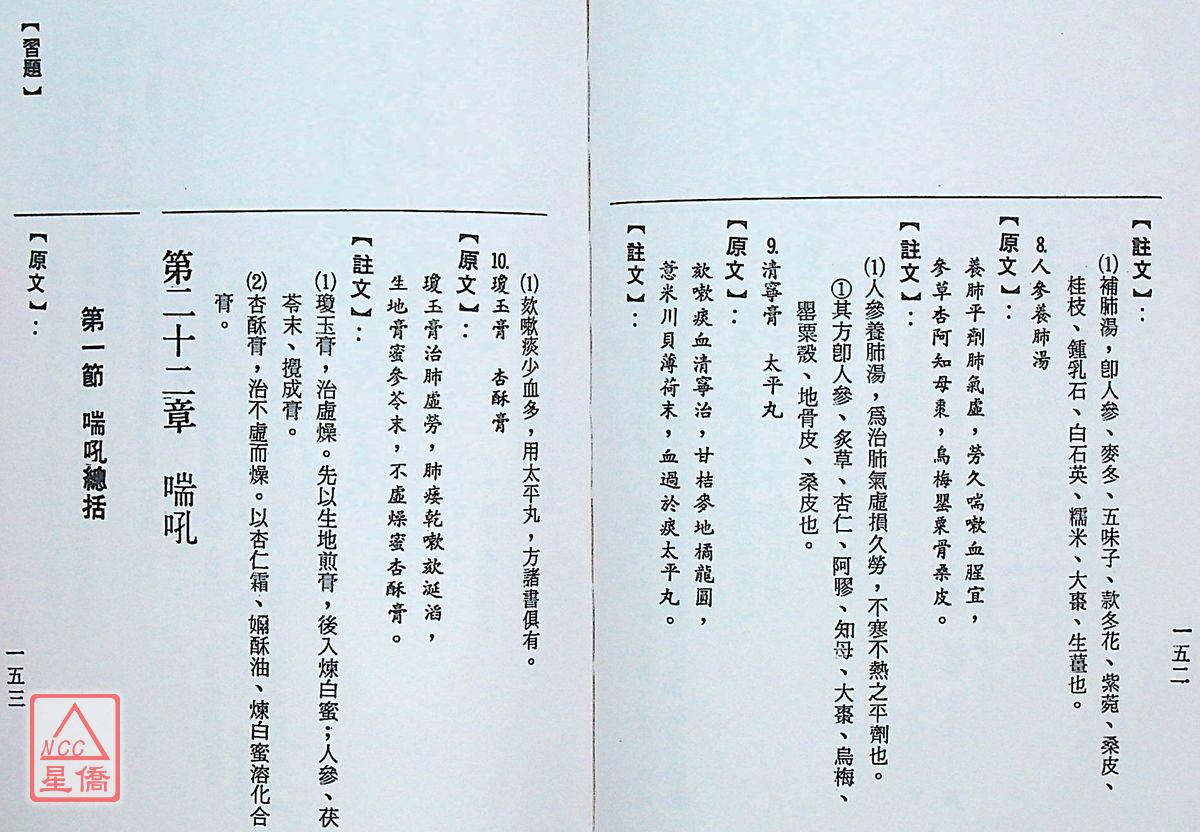 一五二
【註文】：
⑴補肺湯，卽人參、麥冬、五味子、款冬花、紫菀、桑皮、
桂枝、鍾乳石、白石英、糯米、大棗、生薑也。
8.人參養肺湯
【原文】：
養肺平劑肺氣虛，勞久喘嗽血腥宜，
參草杏阿知母棗，烏梅罌粟骨桑皮。
【註文】：
⑴人參養肺湯，爲治肺氣虛損久勞，不寒不熱之平劑也。
①其方卽人參、炙草、杏仁、阿膠、知母、大棗、烏梅、
罌粟殼、地骨皮、桑皮也。
9.清寧膏　太平丸
【原文】：
欬嗽痰血清寧治，甘桔麥地橘龍圓，
薏米川貝薄荷末，血過於痰太平丸。
【註文】：
⑴欬嗽痰少血多，用太平丸，方諸書俱有。
10.瓊玉膏　杏酥膏
【原文】：
瓊玉膏治肺虛勞，肺痿乾嗽欬涎滔，
生地膏蜜參苓末，不虛燥蜜杏酥膏。
【註文】：
⑴瓊玉膏，治虛燥。先以生地煎膏，後入煉白蜜；人參、茯
苓末、攪成膏。
⑵杏酥膏，治不虛而燥。以杏仁霜、嬭酥油、煉白蜜溶化合
膏。
第二十二章　喘吼
第一節　喘吼總括
【習題】
【原文】：
一五三
NCC
星僑